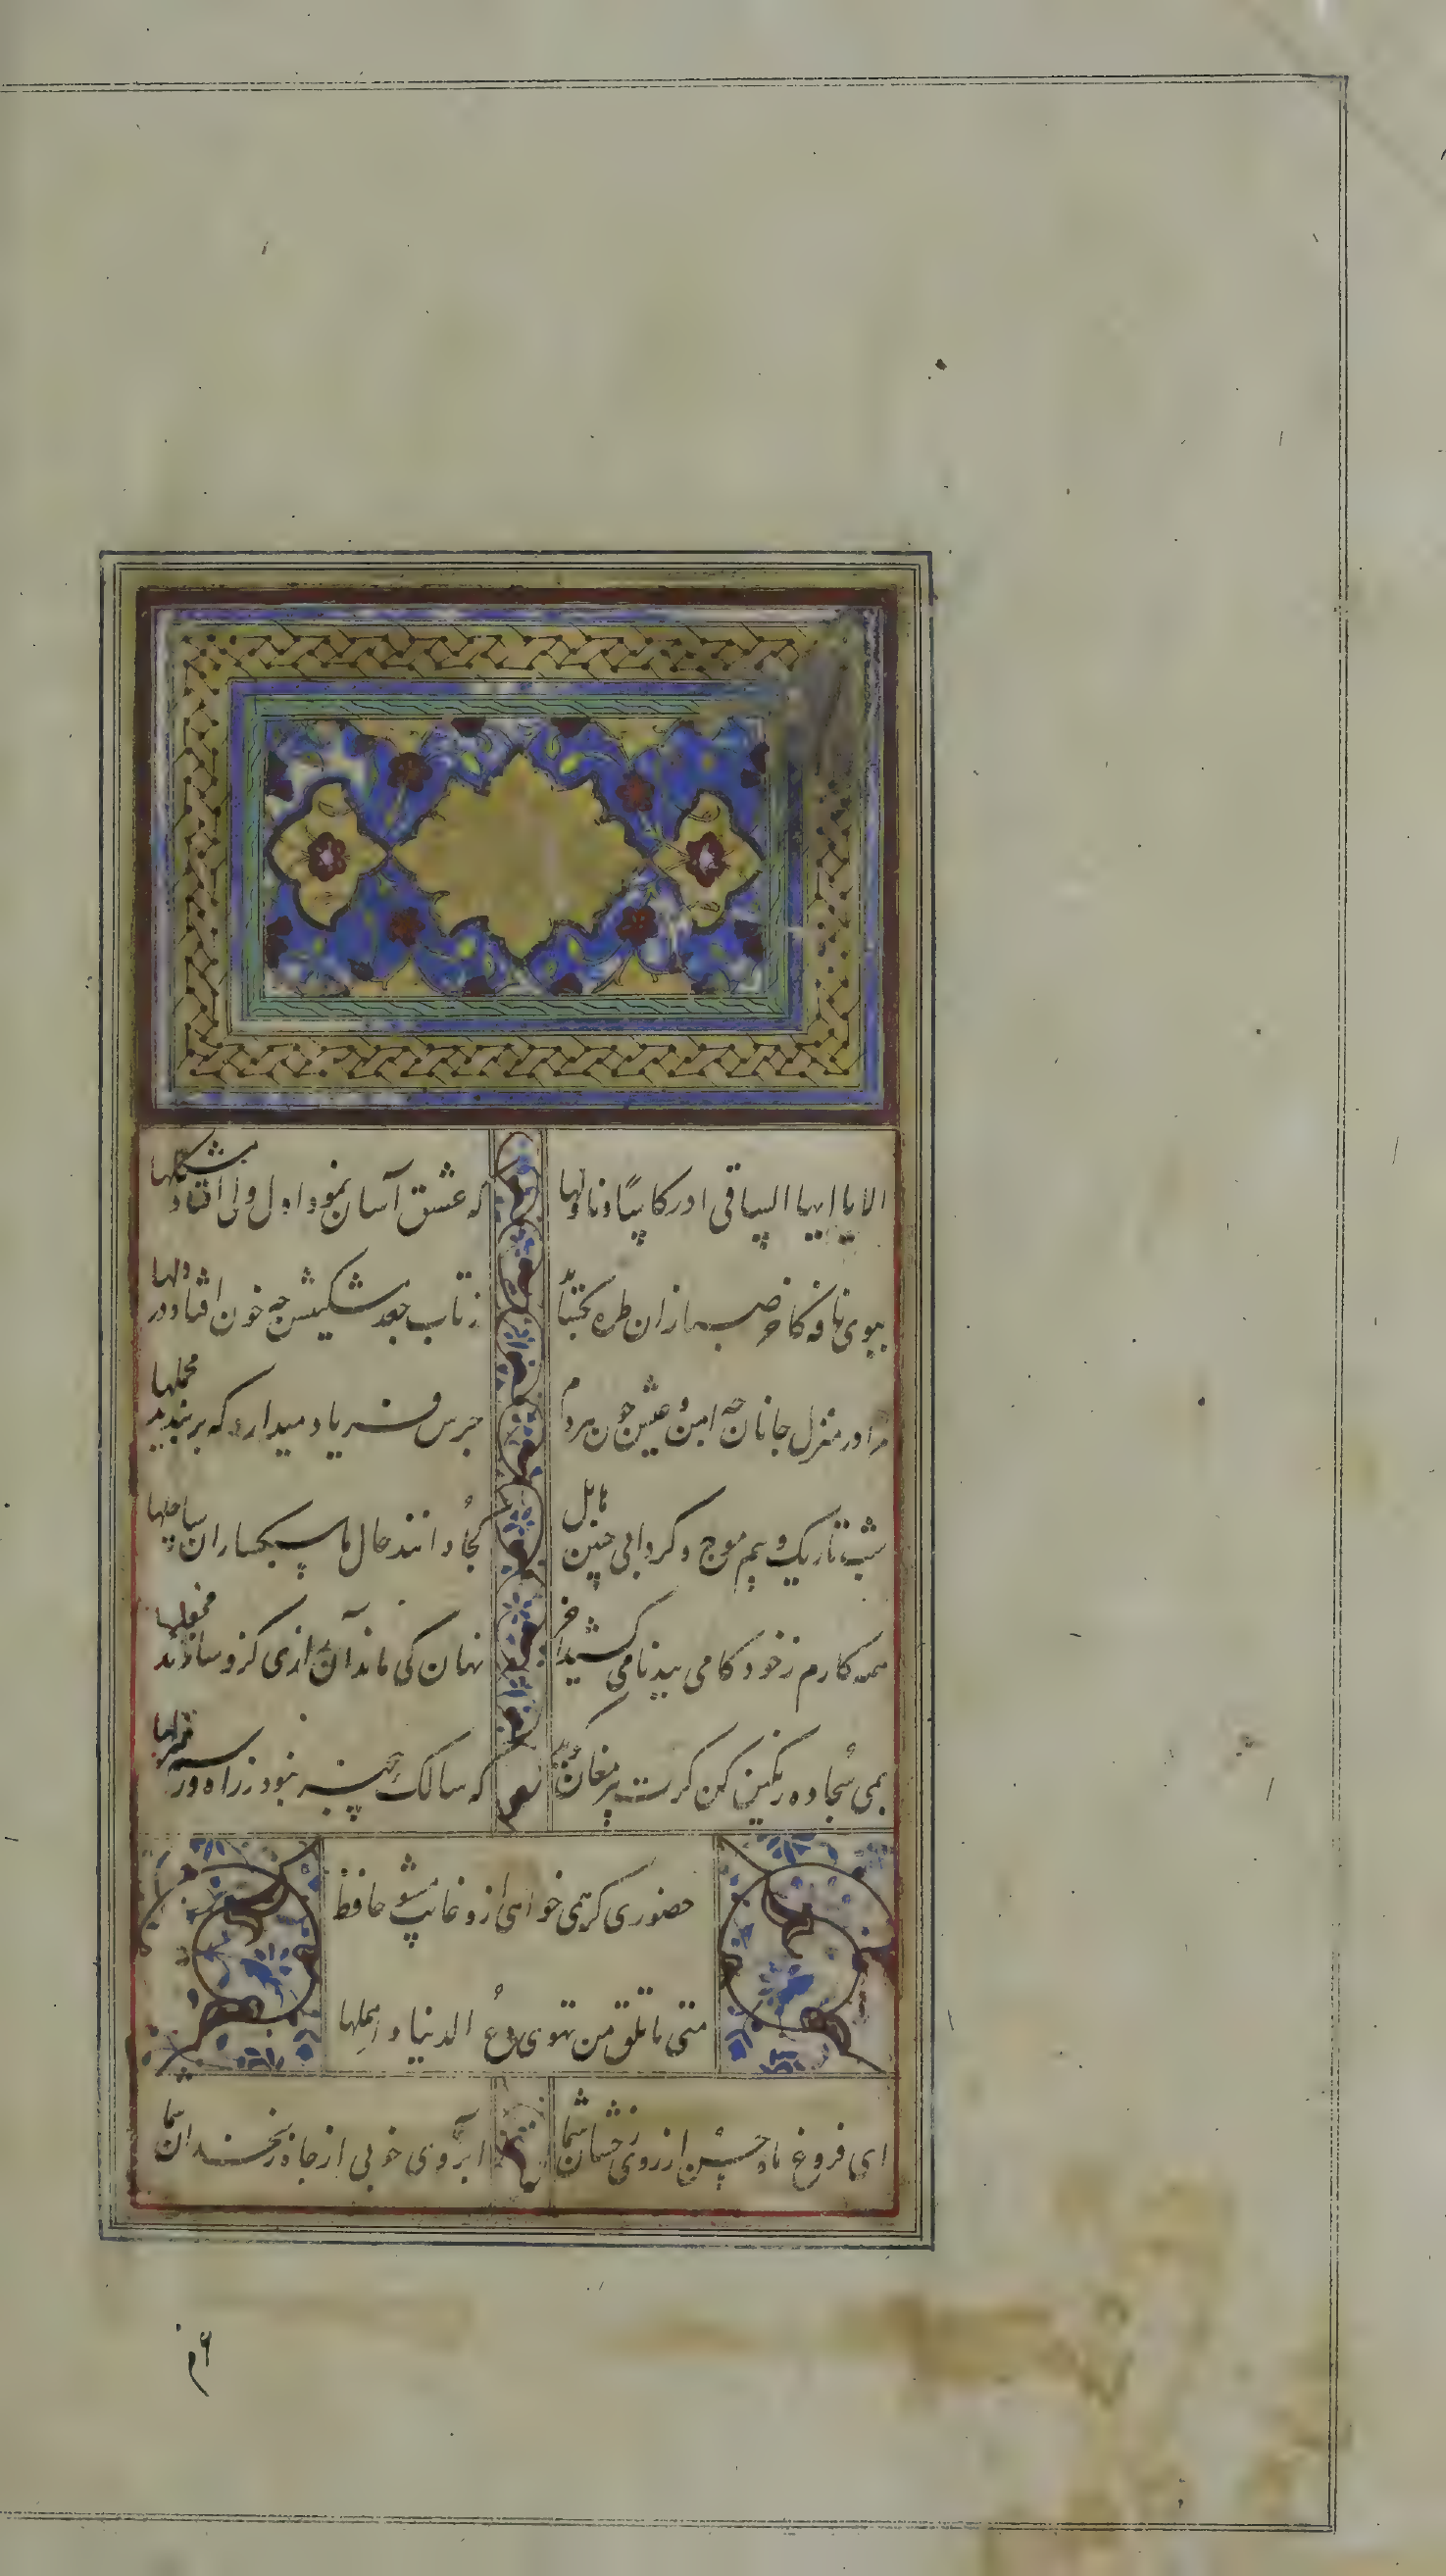 الا یا ایها الساقی ادر کاسا و ناولها که عشق آسان نمود اول ولی افتاد مشکلها
ببوی نافه کاخر صبا زان طره بکشاید ز تاب جعد مشکینش چه خون افتاد در دلها
مرا در منزل جانان چه امن و عیش چون هر دم جرس فریاد میدارد که بربندید محملها
شب تاریک و بیم موج و کردابی چنین هایل کجا دانند حال ما سبکساران ساحلها
همه کارم ز خود کامی ببدنامی کشید آخر نهان کی ماند آن رازی کزو سازند محفلها
بمی سجاده رنکین کن کرت پیر مغان کوید که سالک بیخبر نبود ز راه و رسم منزلها
حضوری کر همی خواهی ازو غایب مشو حافظ
متی ما تلق من تهوی دع الدنیا و اهملها
ای فروغ ماه حسن از روی رخشان شما آبروی خوبی از چاه زنخدان شما